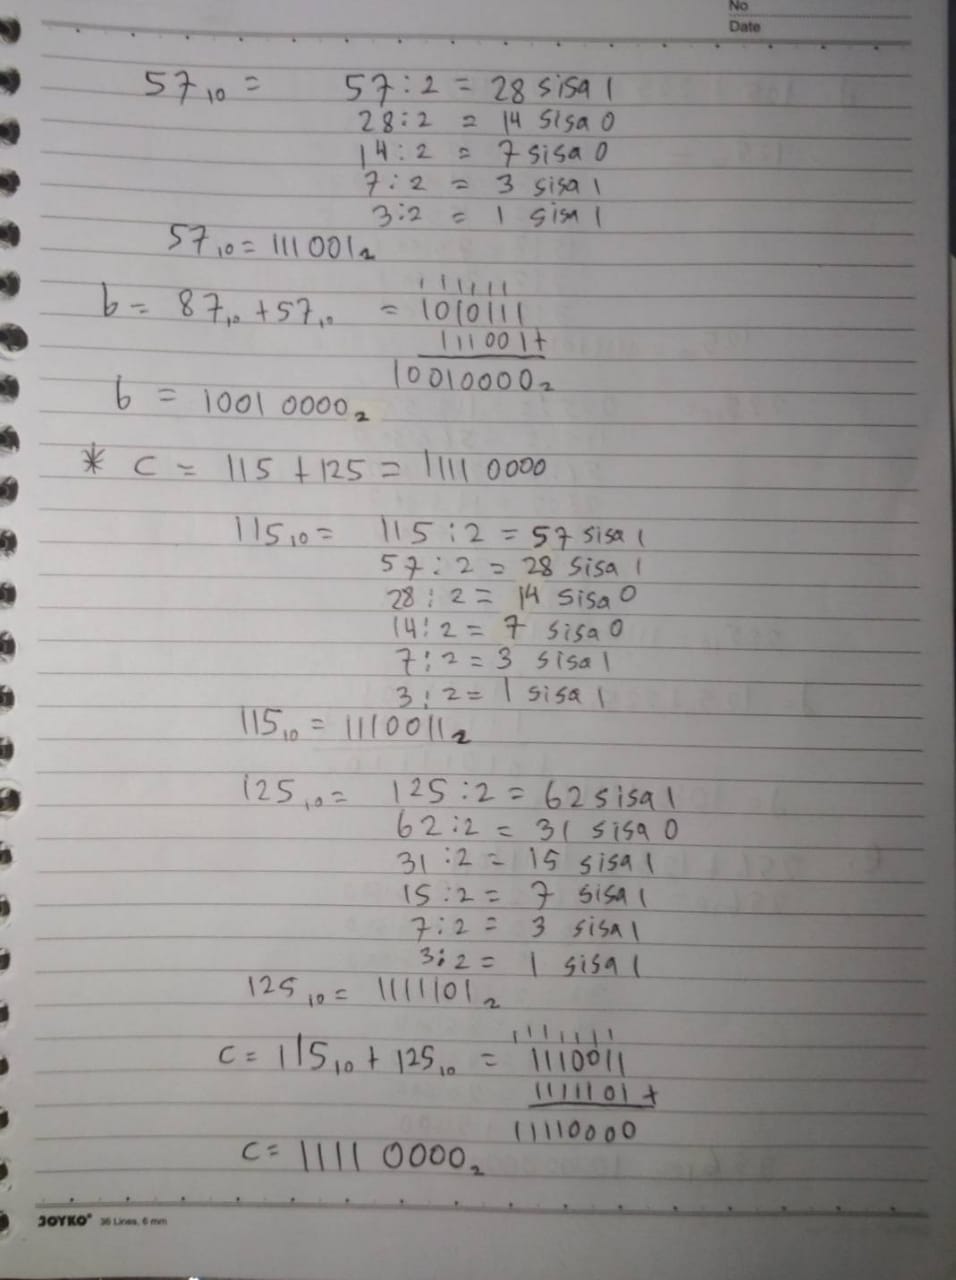 No
Date
57₁₀ = 57 : 2 = 28 sisa 1
28 : 2 = 14 sisa 0
14 : 2 = 7 sisa 0
7 : 2 = 3 sisa 1
3 : 2 = 1 sisa 1
57₁₀ = 111001₂
111111
b = 87₁₀ + 57₁₀ = 1010111
111001 +
10010000₂
b = 1001 0000₂
* C = 115 + 125 = 1111 0000
115₁₀ = 115 : 2 = 57 sisa 1
57 : 2 = 28 sisa 1
28 : 2 = 14 sisa 0
14 : 2 = 7 sisa 0
7 : 2 = 3 sisa 1
3 : 2 = 1 sisa 1
115₁₀ = 1110011₂
125₁₀ = 125 : 2 = 62 sisa 1
62 : 2 = 31 sisa 0
31 : 2 = 15 sisa 1
15 : 2 = 7 sisa 1
7 : 2 = 3 sisa 1
3 : 2 = 1 sisa 1
125₁₀ = 1111101₂
1111111
C = 115₁₀ + 125₁₀ = 1110011
1111101 +
11110000
C = 1111 0000₂
JOYKO® 36 Lines, 6 mm